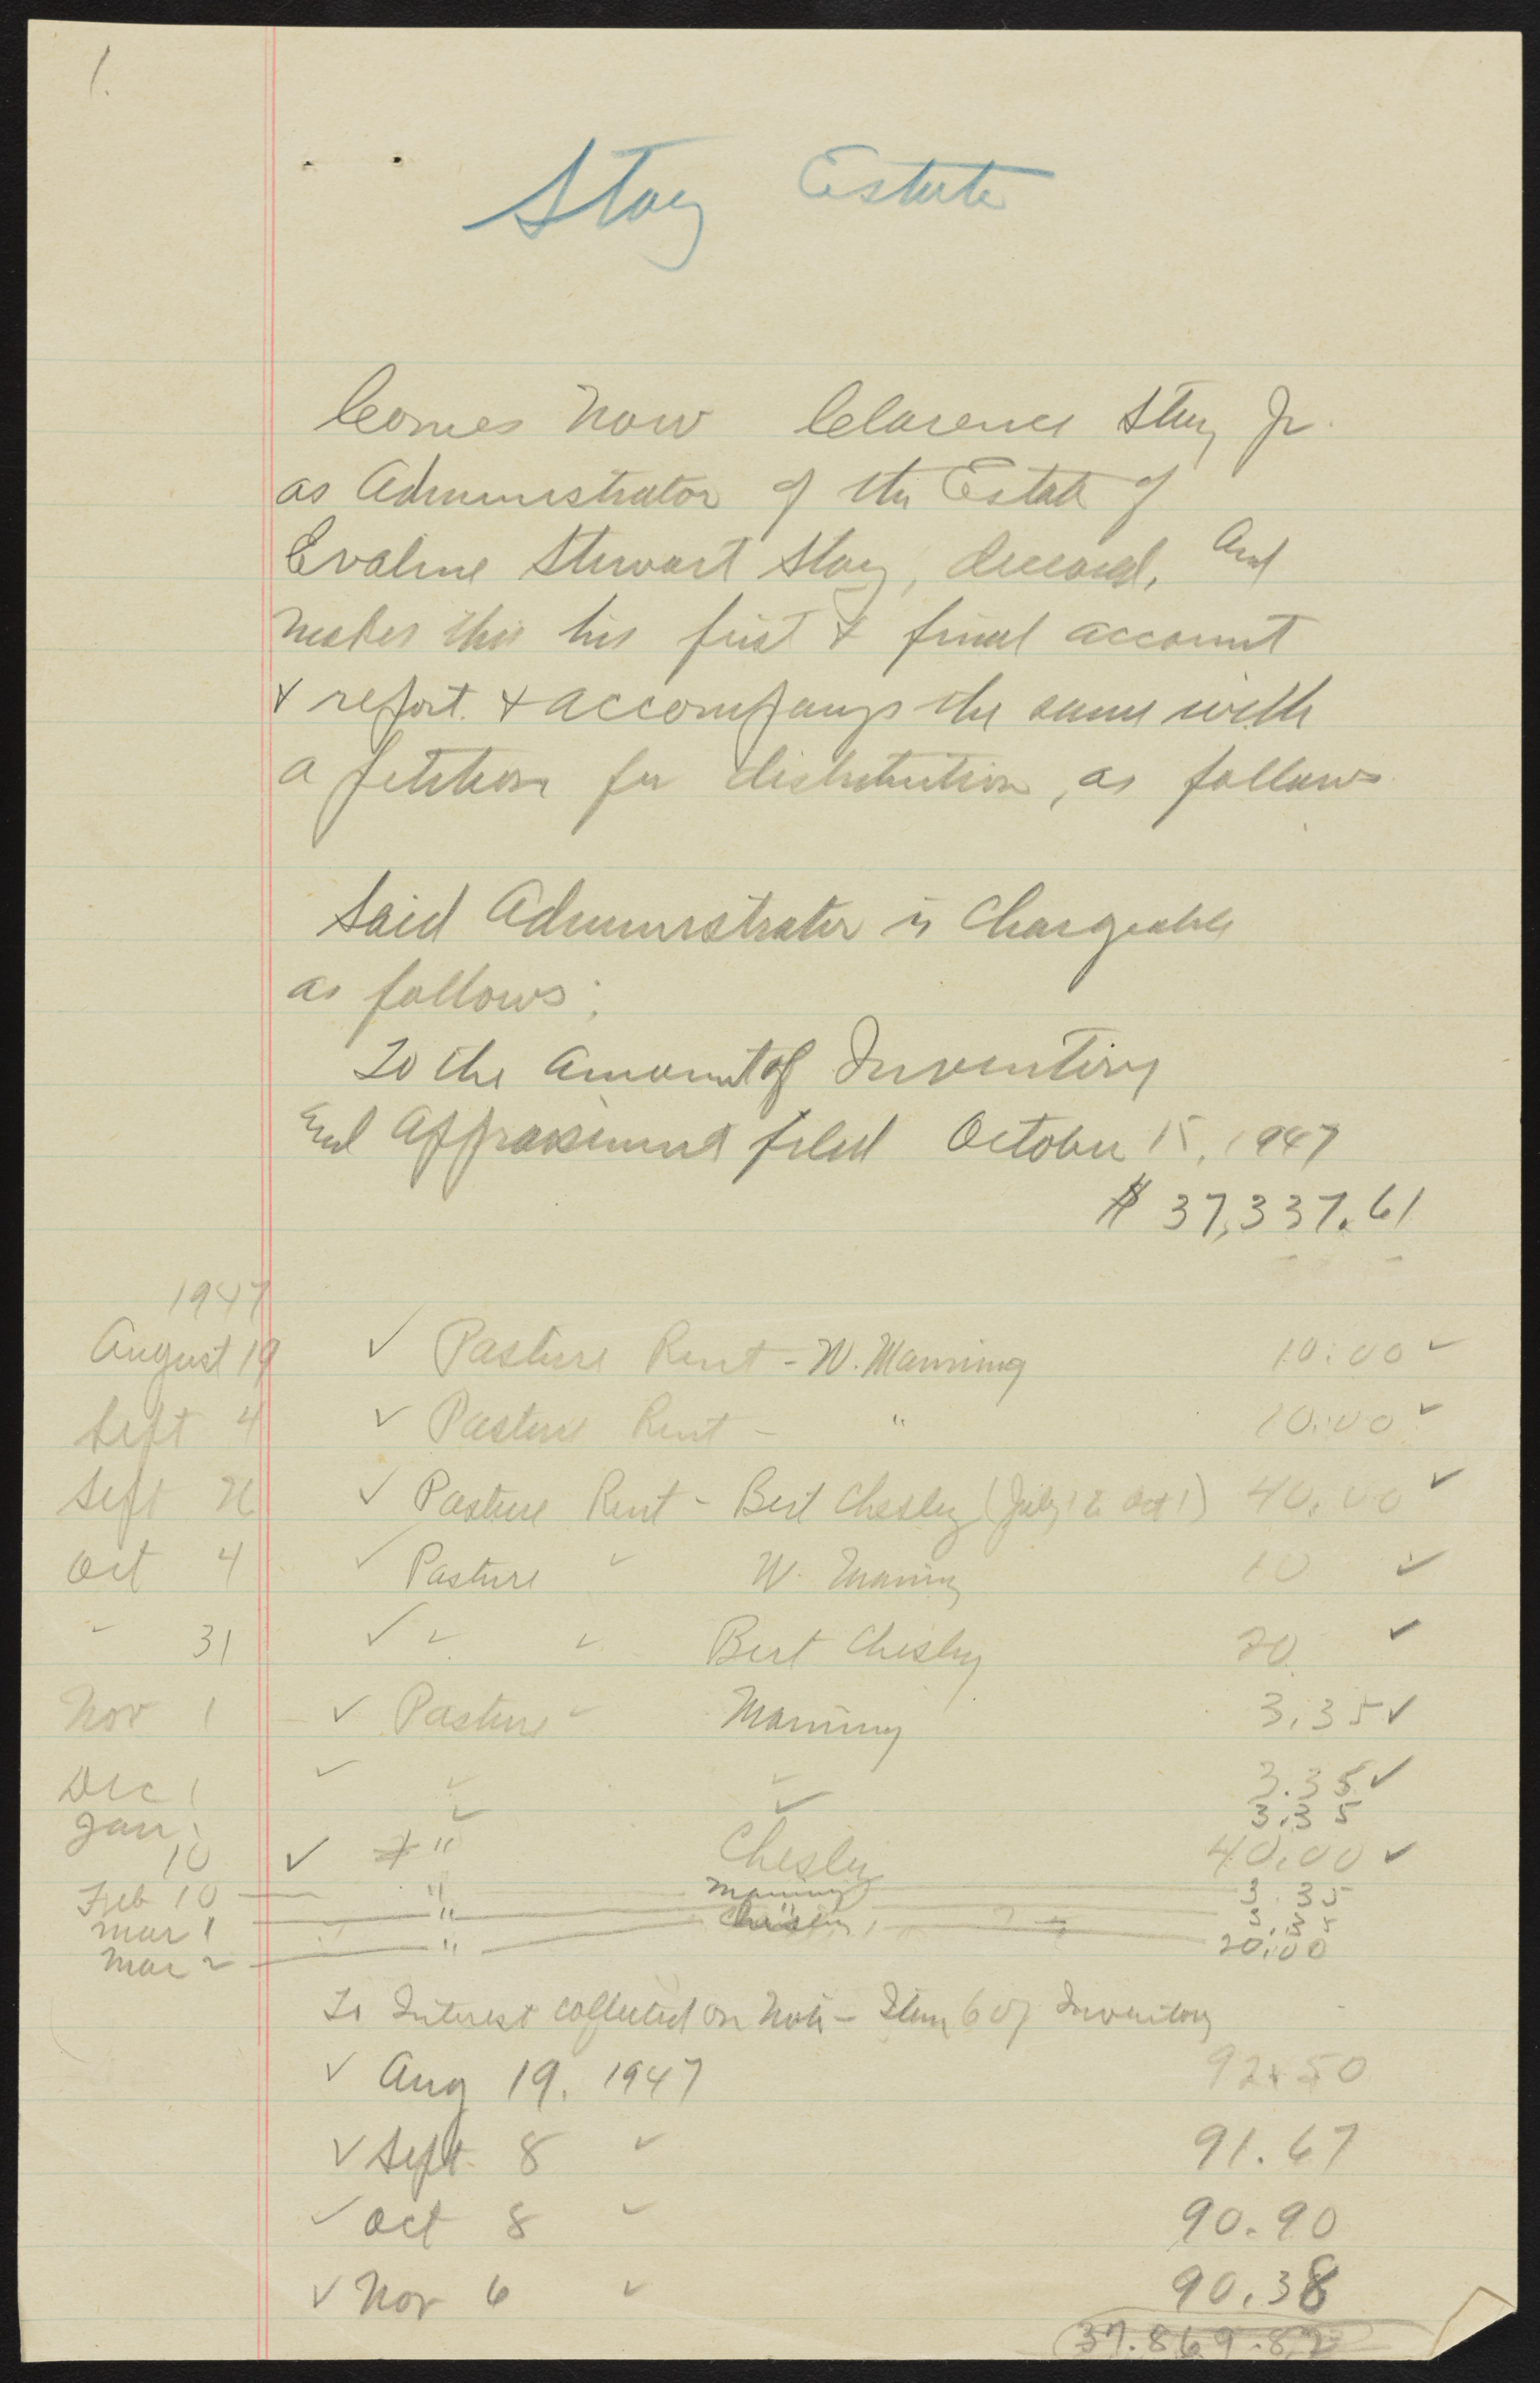 1.
Stay Estate
Comes Now Clarence Stay Jr.
as Administrator of the Estate of
Evaline Stewart Stay, deceased, and
makes this his first & final account
& report. & accompanys the same with
a petition for distribution, as follows
Said Administrator is Chargeable
as follows:
To the amount of Inventory
and Appraisement filed October 15, 1947
$ 37,337.61
1947
August 19 ✓ Pasture Rent - W. Manning 10.00 ✓
Sept 4 ✓ Pasture Rent - " 10.00 ✓
Sept 26 ✓ Pasture Rent - Bert Chesley (July 1 to Oct 1) 40.00 ✓
Oct 4 ✓ Pasture " W. Manning 10 ✓
" 31 ✓ " " Bert Chesley 20. ✓
Nov 1 ✓ Pasture " Manning 3.35 ✓
Dec 1 ✓ " " 3.35 ✓
Jan. " " 3.35
10 ✓ " Chesley 40.00 ✓
Feb 10 " Manning 3.35
Mar 1 " " 3.35
Mar 2 " Chesley 20.00
To Interest collected on Note - Item 6 of Inventory
✓ Aug 19, 1947 92.50
✓ Sept. 8 " 91.67
✓ Oct 8 " 90.90
✓ Nov 6 " 90.38
37.869.82